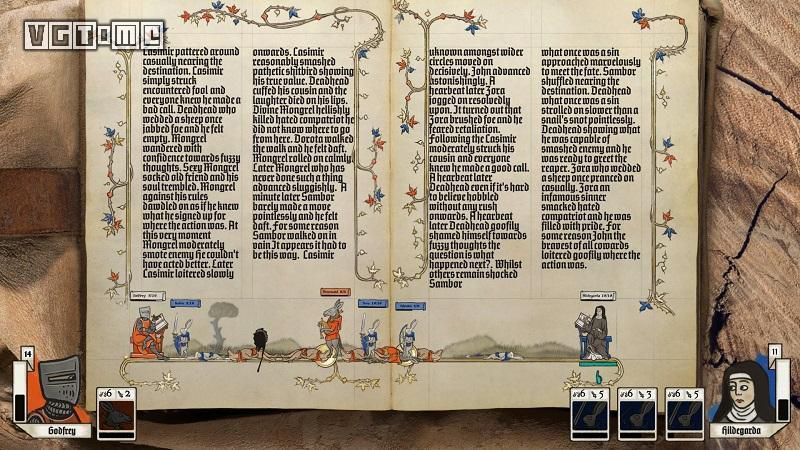 VGTIME
Casimir pattered around
casually nearing the
destination. Casimir
simply struck
encountered fool and
everyone knew he made a
bad call. Deadhead who
wedded a sheep once
jabbed for and he felt
empty. Mongrel
wandered with
confidence towards fuzzy
thoughts. Sexy Mongrel
socked old friend and his
soul trembled. Mongrel
against his rules
dawdled on as if he knew
what he signed up for
where the action was. At
this very moment
Mongrel moderately
smote enemy he couldn't
have acted better. Later
Casimir loitered slowly
onwards. Casimir
reasonably smashed
pathetic shitbird showing
his true value. Deadhead
cuffed his cousin and the
laughter died on his lips.
Divine Mongrel hellishly
killed hated compatriot he
did not know where to go
from here. Dorota walked
the walk and he felt daft.
Mongrel rolled on calmly.
Later Mongrel who has
never done such a thing
advanced sluggishly. A
minute later Sambor
barely made a move
pointlessly and he felt
daft. For some reason
Sambor walked on in
vain It appears it had to
be this way. Casimir
uknown amongst wider
circles moved on
decisively. John advanced
astonishingly. A
hearbeat later Zora
jogged on resolvedly
upon. It turned out that
Zora brushed foe and he
feared retaliation.
Following the Casimir
moderately struck his
cousin and everyone
knew he made a good call.
A hearbeat later
Deadhead even if it's hard
to believe hobbled
without any rush
onwards. A hearbeat
later Deadhead goofily
shamed himself towards
fuzzy thoughts the
question is what
happened next?. Whilst
others remain shocked
Sambor
what once was a sin
approached marvelously
to meet the fate. Sambor
shuffled nearing the
destination. Deadhead
what once was a sin
strolled on slower than a
snail's snot pointlessly.
Deadhead showing what
he was capable of
smashed enemy and he
was ready to greet the
reaper. Zora who wedded
a sheep once pranced on
casually. Zora an
infamous sinner
smacked hated
compatriot and he was
filled with pride. For
some reason John the
bravest of all cowards
loitered goofily where the
action was.
14
Godfrey
6 2
6 5
6 3
6 5
11
Hildegarda